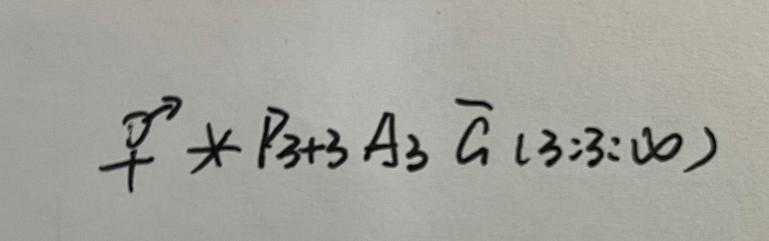 ⚥ * P3+3 A3 G̅ (3:3:∞)